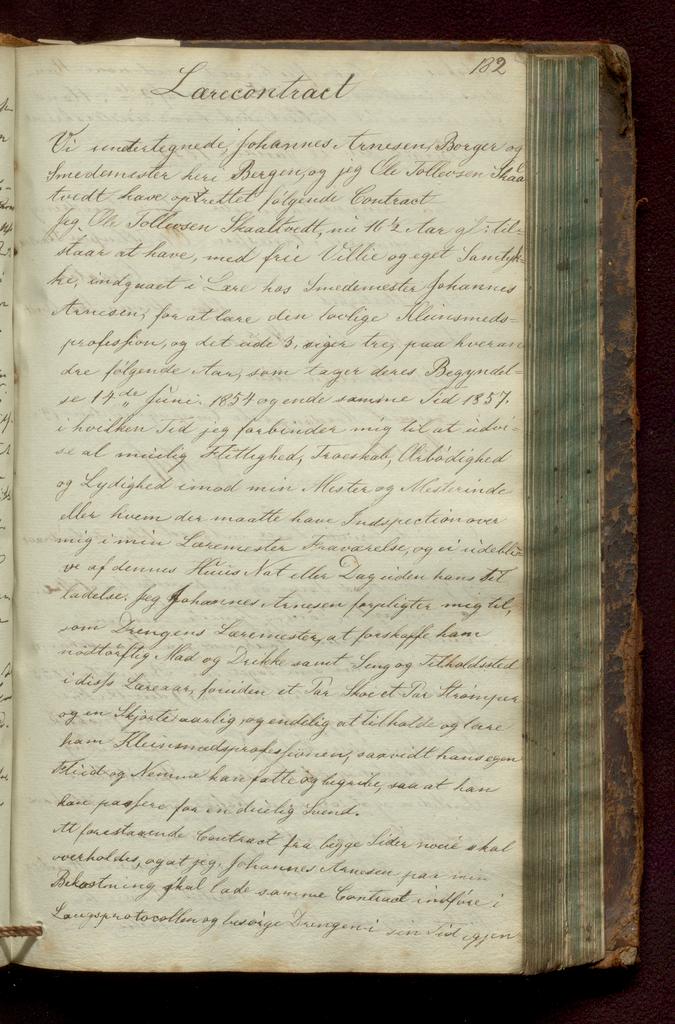 182
Lærecontract
Vi undertegnede, Johannes Arnesen, Borger og
Smedemester here Bergen, og jeg Ole Tollevsen Skaa
tvedt have oprettet følgende Contract
Jeg Ole Tollevsen Skaattvedt, nu 16½ Aar gl: til-
staar at have, med frie Villie og eget Samtyk-
ke, indgaaet i Lære hos Smedemester Johannes
Arnesen, for at lære den lovlige Kleinsmeds-
profession, og det ude 3, siger tre, paa hveran
dre følgende Aar, som tager deres Begyndel-
se 14de Juni. 1854 og ende samme Tid 1857.
i hvilken Tid jeg forbinder mig til at udvi-
se al muelig Flittighed, Troeskab, Ærbødighed
og Lydighed imod min Mester og Mesterinde
eller hvem der maatte have Indspection over
mig i min Læremester Fraværelse, og ei udebli-
ve af dennes Huus Nat eller Dag uden hans Til
ladelse. Jeg Johannes Arnesen forpligter mig til,
som Drengens Læremester, at forskaffe ham
nødtørftig Mad og Drikke samt Seng og Tilholdssted
i disse Læreaar, foruden et Par Skoe et Par Strømper
og en Skjorte aarlig, og endelig at tilholde og lære
ham Kleinsmedsprofessionen, saavidt hans egen
Fliid og Nemme kan fatte og begribe, saa at han
kan passere for en duelig Svend.
At forestaaende Contract fra begge Sider nøie skal
overholdes, og at jeg, Johannes Arnesen paa min
Bekostning skal lade samme Contract indføre i
Laugsprotocollen og besørge Drengen i sin Tid igjen